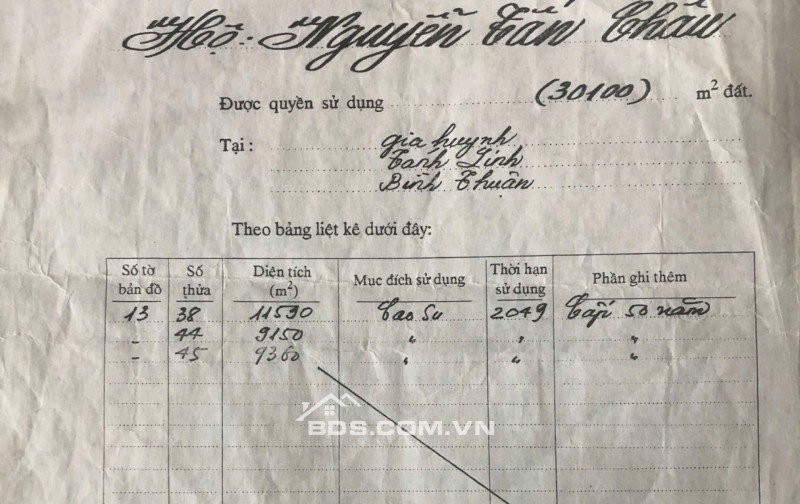 Hộ: Nguyễn Tấn Châu
Được quyền sử dụng (30100) m² đất.
Tại: Gia huynh
Tánh Linh
Bình Thuận
Theo bảng liệt kê dưới đây:
Số tờ bản đồ Số thửa Diện tích (m²) Mục đích sử dụng Thời hạn sử dụng Phần ghi thêm
13 38 11590 Cao Su 2049 Cấp 50 năm
- 44 9150 " " "
- 45 9360 " " "
BDS.COM.VN